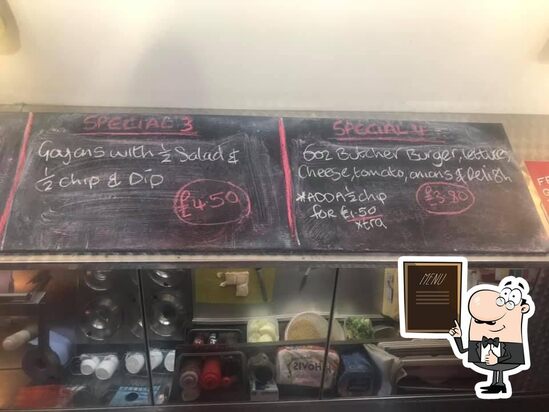 SPECIAL 3
Goujons with ½ Salad &
½ chip & Dip
£4.50
SPECIAL 4
6oz Butcher Burger, lettuce,
Cheese, tomato, onions & Relish
*ADD A ½ chip
FOR £1.50
xtra
£3.80
MENU
HOVIS